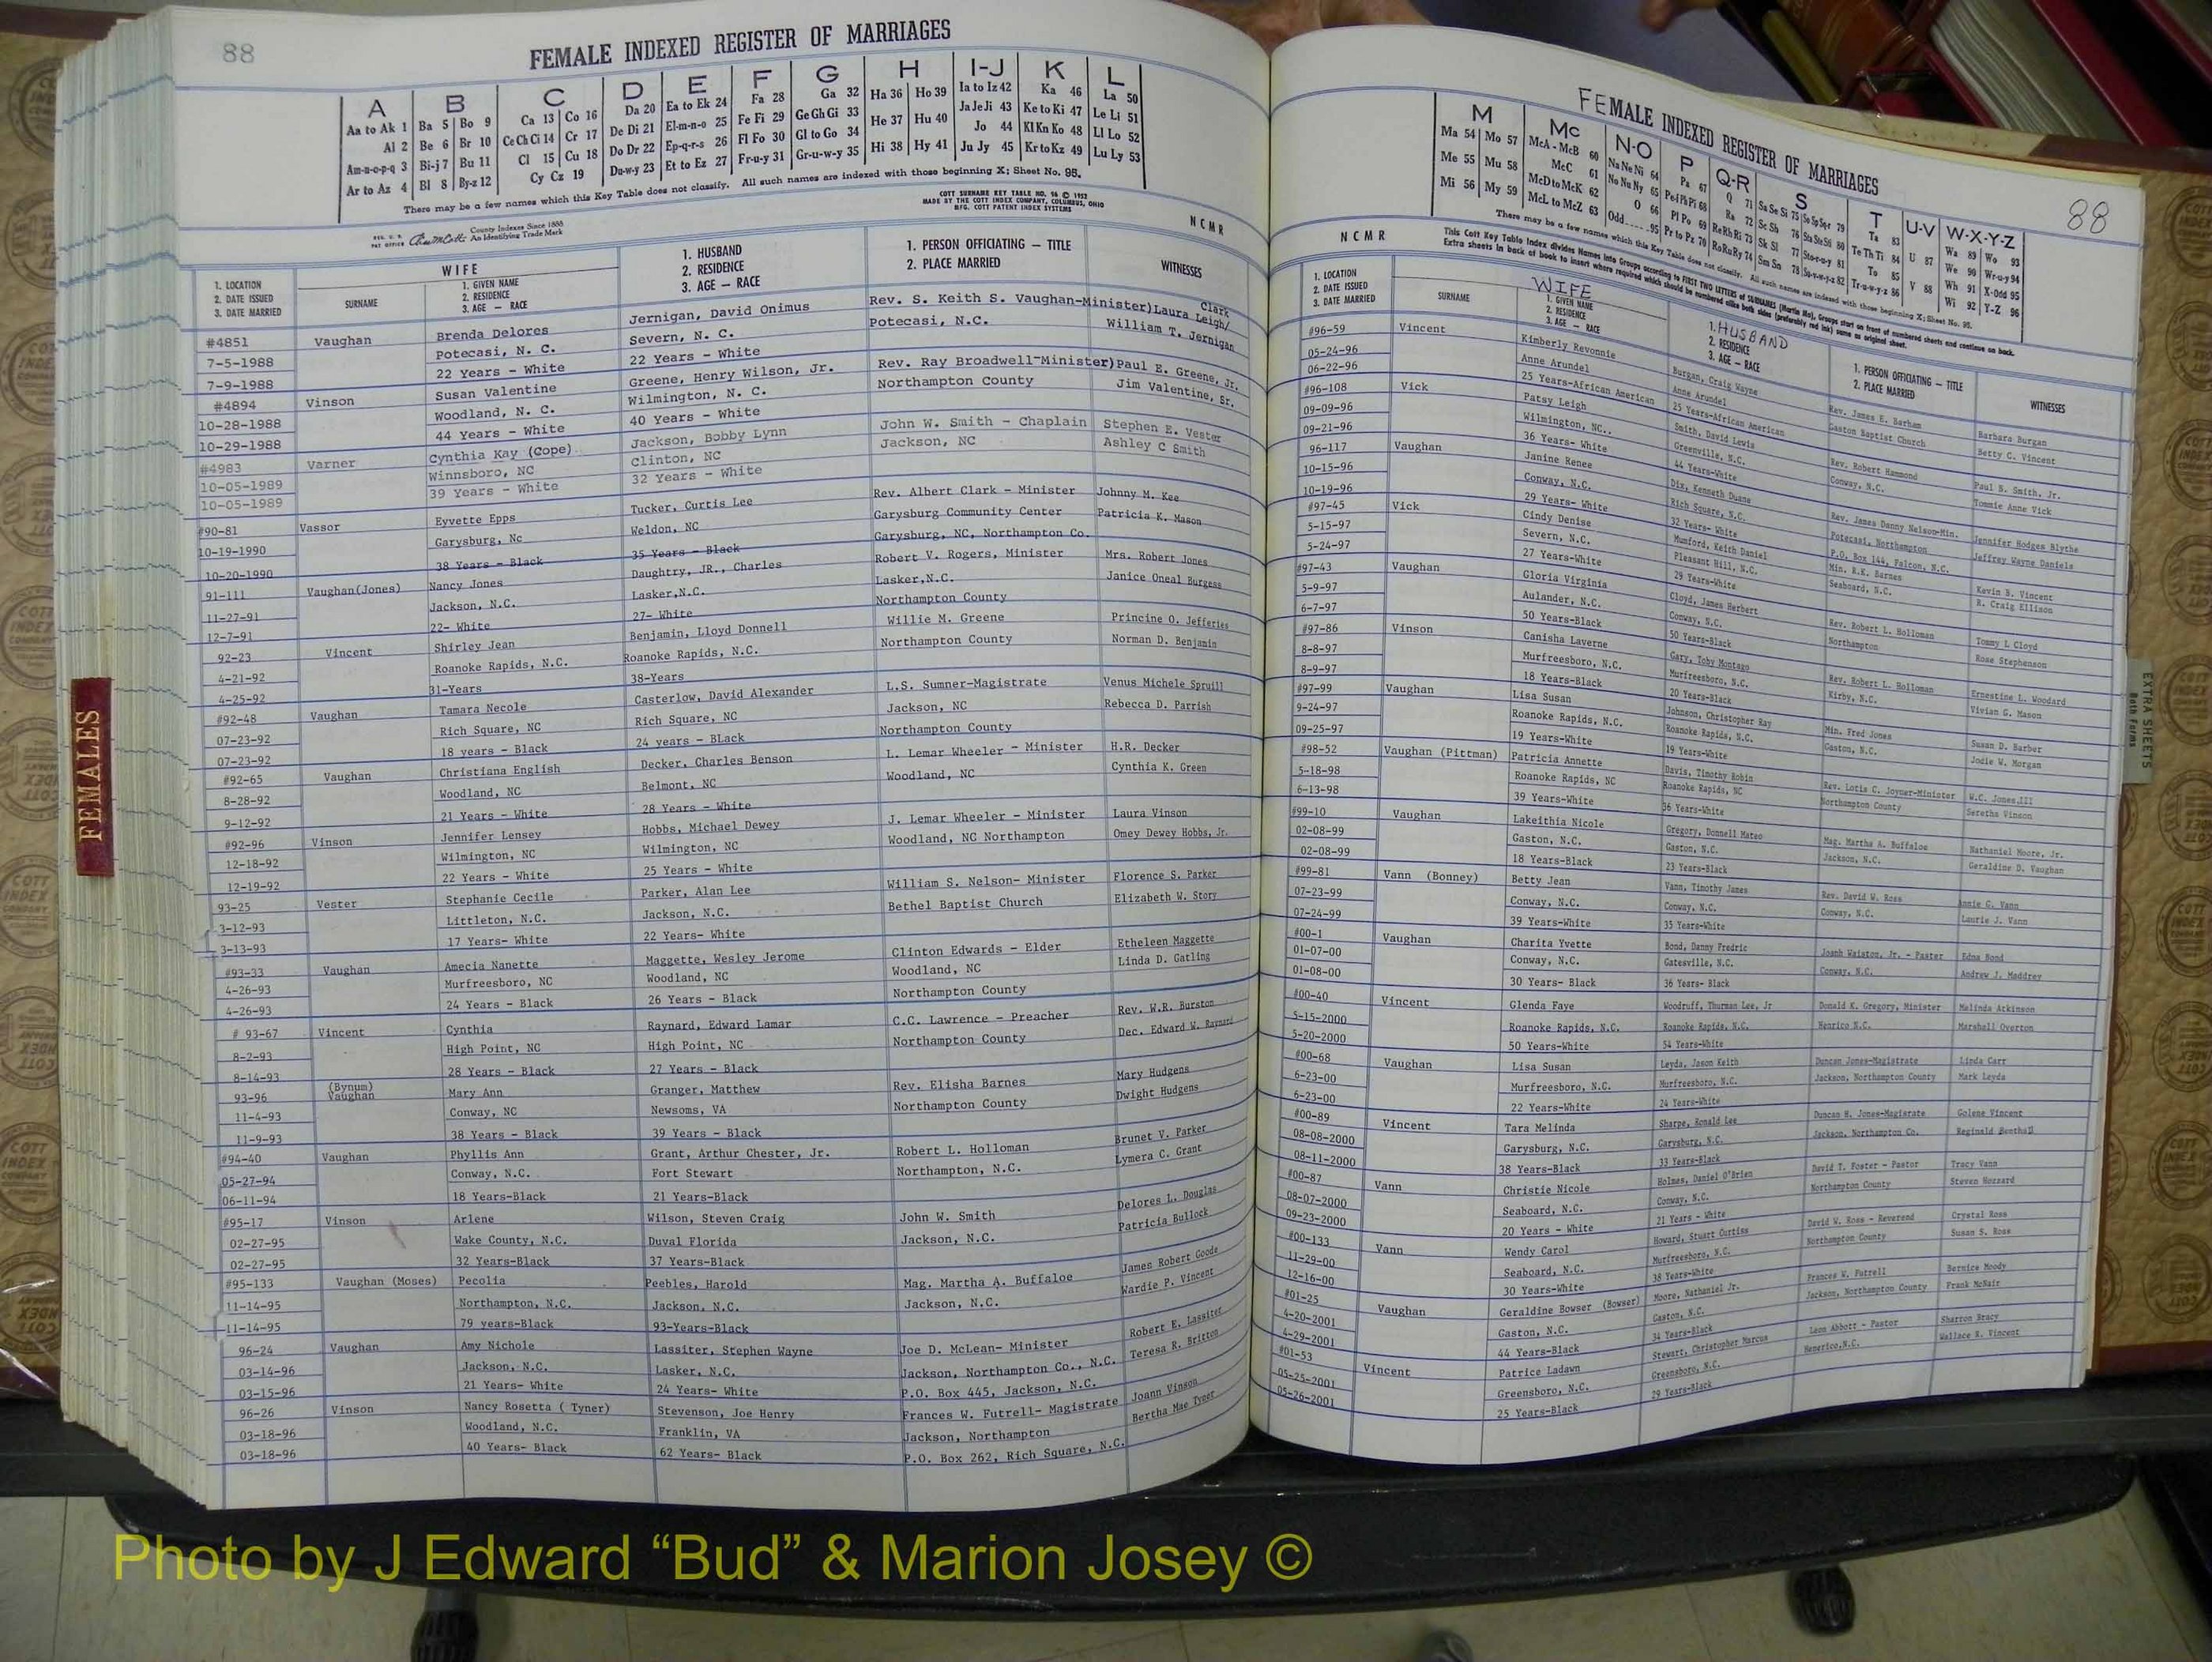 88
FEMALE INDEXED REGISTER OF MARRIAGES
A B C D E F G H I-J K L
Aa to Ak 1 Ba 5 Bo 9 Ca 13 Co 16 Da 20 Ea to Ek 24 Fa 28 Ga 32 Ha 36 Ho 39 Ia to Iz 42 Ka 46 La 50
Al 2 Be 6 Br 10 Ce Ch Ci 14 Cr 17 De Di 21 El-m-n-o 25 Fe Fi 29 Ge Gh Gi 33 He 37 Hu 40 Ja Je Ji 43 Ke to Ki 47 Le Li 51
Am-n-o-p-q 3 Bi-j 7 Bu 11 Cl 15 Cu 18 Do Dr 22 Ep-q-r-s 26 Fl Fo 30 Gl to Go 34 Hi 38 Hy 41 Jo 44 Kl Kn Ko 48 Ll Lo 52
Ar to Az 4 Bl 8 By-z 12 Cy Cz 19 Du-w-y 23 Et to Ez 27 Fr-u-y 31 Gr-u-w-y 35 Ju Jy 45 Kr to Kz 49 Lu Ly 53
There may be a few names which this Key Table does not classify. All such names are indexed with those beginning X; Sheet No. 95.
COTT SURNAME KEY TABLE NO. 96 © 1952
MADE BY THE COTT INDEX COMPANY, COLUMBUS, OHIO
MFG. COTT PATENT INDEX SYSTEMS
County Indexes Since 1888
An Identifying Trade Mark
NCMR
1. LOCATION 2. DATE ISSUED 3. DATE MARRIED
WIFE
SURNAME
1. GIVEN NAME 2. RESIDENCE 3. AGE — RACE
1. HUSBAND 2. RESIDENCE 3. AGE — RACE
1. PERSON OFFICIATING — TITLE 2. PLACE MARRIED
WITNESSES
#4851 Vaughan Brenda Delores Jernigan, David Onimus Rev. S. Keith S. Vaughan-Minister)Laura Leigh/ Clark
7-5-1988 Potecasi, N. C. Severn, N. C. Potecasi, N.C. William T. Jernigan
7-9-1988 22 Years - White 22 Years - White
#4894 Vinson Susan Valentine Greene, Henry Wilson, Jr. Rev. Ray Broadwell-Minister)Paul E. Greene, Jr.
10-28-1988 Woodland, N. C. Wilmington, N. C. Northampton County Jim Valentine, Sr.
10-29-1988 44 Years - White 40 Years - White
#4983 Varner Cynthia Kay (Cope) Jackson, Bobby Lynn John W. Smith - Chaplain Stephen E. Vester
10-05-1989 Winnsboro, NC Clinton, NC Jackson, NC Ashley C Smith
10-05-1989 39 Years - White 32 Years - White
#90-81 Vassor Eyvette Epps Tucker, Curtis Lee Rev. Albert Clark - Minister Johnny M. Kee
10-19-1990 Garysburg, Nc Weldon, NC Garysburg Community Center Patricia K. Mason
10-20-1990 38 Years - Black 35 Years - Black Garysburg, NC, Northampton Co.
91-111 Vaughan(Jones) Nancy Jones Daughtry, JR., Charles Robert V. Rogers, Minister Mrs. Robert Jones
11-27-91 Jackson, N.C. Lasker,N.C. Lasker,N.C. Janice Oneal Burgess
12-7-91 22- White 27- White Northampton County
92-23 Vincent Shirley Jean Benjamin, Lloyd Donnell Willie M. Greene Princine O. Jefferies
4-21-92 Roanoke Rapids, N.C. Roanoke Rapids, N.C. Northampton County Norman D. Benjamin
4-25-92 31-Years 38-Years
#92-48 Vaughan Tamara Necole Casterlow, David Alexander L.S. Sumner-Magistrate Venus Michele Spruill
07-23-92 Rich Square, NC Rich Square, NC Jackson, NC Rebecca D. Parrish
07-23-92 18 years - Black 24 years - BLack Northampton County
#92-65 Vaughan Christiana English Decker, Charles Benson L. Lemar Wheeler - Minister H.R. Decker
8-28-92 Woodland, NC Belmont, NC Woodland, NC Cynthia K. Green
9-12-92 21 Years - White 28 Years - White
#92-96 Vinson Jennifer Lensey Hobbs, Michael Dewey J. Lemar Wheeler - Minister Laura Vinson
12-18-92 Wilmington, NC Wilmington, NC Woodland, NC Northampton Omey Dewey Hobbs, Jr.
12-19-92 22 Years - White 25 Years - White
93-25 Vester Stephanie Cecile Parker, Alan Lee William S. Nelson- Minister Florence S. Parker
3-12-93 Littleton, N.C. Jackson, N.C. Bethel Baptist Church Elizabeth W. Story
3-13-93 17 Years- White 22 Years- White
#93-33 Vaughan Amecia Nanette Maggette, Wesley Jerome Clinton Edwards - Elder Etheleen Maggette
4-26-93 Murfreesboro, NC Woodland, NC Woodland, NC Linda D. Gatling
4-26-93 24 Years - Black 26 Years - Black Northampton County
# 93-67 Vincent Cynthia Raynard, Edward Lamar C.C. Lawrence - Preacher Rev. W.R. Burston
8-2-93 High Point, NC High Point, NC Northampton County Dec. Edward W. Raynard
8-14-93 28 Years - Black 27 Years - Black
93-96 (Bynum) Vaughan Mary Ann Granger, Matthew Rev. Elisha Barnes Mary Hudgens
11-4-93 Conway, NC Newsoms, VA Northampton County Dwight Hudgens
11-9-93 38 Years - Black 39 Years - Black
#94-40 Vaughan Phyllis Ann Grant, Arthur Chester, Jr. Robert L. Holloman Brunet V. Parker
05-27-94 Conway, N.C. Fort Stewart Northampton, N.C. Lymera C. Grant
06-11-94 18 Years-Black 21 Years-Black
#95-17 Vinson Arlene Wilson, Steven Craig John W. Smith Delores L. Douglas
02-27-95 Wake County, N.C. Duval Florida Jackson, N.C. Patricia Bullock
02-27-95 32 Years-Black 37 Years-Black
#95-133 Vaughan (Moses) Pecolia Peebles, Harold Mag. Martha A. Buffaloe James Robert Goode
11-14-95 Northampton, N.C. Jackson, N.C. Jackson, N.C. Wardie P. Vincent
11-14-95 79 years-Black 93-Years-Black
96-24 Vaughan Amy Nichole Lassiter, Stephen Wayne Joe D. McLean- Minister Robert E. Lassiter
03-14-96 Jackson, N.C. Lasker, N.C. Jackson, Northampton Co., N.C. Teresa R. Britton
03-15-96 21 Years- White 24 Years- White P.O. Box 445, Jackson, N.C.
96-26 Vinson Nancy Rosetta ( Tyner) Stevenson, Joe Henry Frances W. Futrell- Magistrate Joann Vinson
03-18-96 Woodland, N.C. Franklin, VA Jackson, Northampton Bertha Mae Tyner
03-18-96 40 Years- Black 62 Years- Black P.O. Box 262, Rich Square, N.C.
FEMALES
FEMALE INDEXED REGISTER OF MARRIAGES
88
M Mc N-O P Q-R S T U-V W-X-Y-Z
Ma 54 Mo 57 McA - McB 60 Na Ne Ni 64 Pa 67 Q 71 Sa Se Si 75 So Sp Sq-r 79 Ta 83 U 87 Wa 89 Wo 93
Me 55 Mu 58 McC 61 No Nu Ny 65 Pe-f Ph Pi 68 Ra 72 Sc Sh 76 Sta Ste Sti 80 Te Th Ti 84 V 88 We 90 Wr-u-y 94
Mi 56 My 59 McD to McK 62 O 66 Pl Po 69 Re Rh Ri 73 Sk Sl 77 Sto-r-u-y 81 To 85 Wh 91 X-Odd 95
McL to McZ 63 Odd 95 Pr to Pz 70 Ro Ru Ry 74 Sm Sn 78 Su-v-w-y-z 82 Tr-u-w-y-z 86 Wi 92 Y-Z 96
There may be a few names which this Key Table does not classify. All such names are indexed with those beginning X; Sheet No. 95.
This Cott Key Table Index divides Names into Groups according to FIRST TWO LETTERS of SURNAMES (Martin Ma). Groups start on front of numbered sheets and continue on back.
Extra sheets in back of book to insert where required which should be numbered alike both sides (preferably red ink) same as original sheet.
NCMR
1. LOCATION 2. DATE ISSUED 3. DATE MARRIED
SURNAME
WIFE
1. GIVEN NAME 2. RESIDENCE 3. AGE — RACE
1. HUSBAND 2. RESIDENCE 3. AGE — RACE
1. PERSON OFFICIATING — TITLE 2. PLACE MARRIED
WITNESSES
#96-59 Vincent Kimberly Revonnie Burgan, Craig Wayne Rev. James E. Barham Barbara Burgan
05-24-96 Anne Arundel Anne Arundel Gaston Baptist Church Betty C. Vincent
06-22-96 25 Years-African American 25 Years-African American
#96-108 Vick Patsy Leigh Smith, David Lewis Rev. Robert Hammond Paul N. Smith, Jr.
09-09-96 Wilmington, NC.. Greenville, N.C. Conway, N.C. Tommie Anne Vick
09-21-96 36 Years- White 44 Years-White
96-117 Vaughan Janine Renee Dix, Kenneth Duane Rev. James Danny Nelson-Min. Jennifer Hodges Blythe
10-15-96 Conway, N.C. Rich Square, N.C. Potecasi, Northampton Jeffrey Wayne Daniels
10-19-96 29 Years- White 32 Years- White P.O. Box 144, Falcon, N.C.
#97-45 Vick Cindy Denise Mumford, Keith Daniel Min. R.K. Barnes Kevin B. Vincent
5-15-97 Severn, N.C. Pleasant Hill, N.C. Seaboard, N.C. R. Craig Ellison
5-24-97 27 Years-White 29 Years-White
#97-43 Vaughan Gloria Virginia Cloyd, James Herbert Rev. Robert L. Holloman Tommy L Cloyd
5-9-97 Aulander, N.C. Conway, N.C. Northampton Rose Stephenson
6-7-97 50 Years-Black 50 Years-Black
#97-86 Vinson Canisha Laverne Gary, Toby Montago Rev. Robert L. Holloman Ernestine L. Woodard
8-8-97 Murfreesboro, N.C. Murfreesboro, N.C. Kirby, N.C. Vivian G. Mason
8-9-97 18 Years-Black 20 Years-Black
#97-99 Vaughan Lisa Susan Johnson, Christopher Ray Min. Fred Jones Susan D. Barber
9-24-97 Roanoke Rapids, N.C. Roanoke Rapids, N.C. Gaston, N.C. Jodie W. Morgan
09-25-97 19 Years-White 19 Years-White
#98-52 Vaughan (Pittman) Patricia Annette Davis, Timothy Robin Rev. Lotis C. Joyner-Minister W.C. Jones,III
5-18-98 Roanoke Rapids, NC Roanoke Rapids, NC Northampton County Seretha Vinson
6-13-98 39 Years-White 36 Years-White
#99-10 Vaughan Lakeithia Nicole Gregory, Donnell Mateo Mag. Martha A. Buffaloe Nathaniel Moore, Jr.
02-08-99 Gaston, N.C. Gaston, N.C. Jackson, N.C. Geraldine D. Vaughan
02-08-99 18 Years-Black 23 Years-Black
#99-81 Vann (Bonney) Betty Jean Vann, Timothy James Rev. David W. Ross Annie G. Vann
07-23-99 Conway, N.C. Conway, N.C. Conway, N.C. Laurie J. Vann
07-24-99 39 Years-White 35 Years-White
#00-1 Vaughan Charita Yvette Bond, Danny Fredric Joanh Waiston, Jr. - Paster Edna Bond
01-07-00 Conway, N.C. Gatesville, N.C. Conway, N.C. Andrew J. Maddrey
01-08-00 30 Years- Black 36 Years- Black
#00-40 Vincent Glenda Faye Woodruff, Thurman Lee, Jr Donald K. Gregory, Minister Malinda Atkinson
5-15-2000 Roanoke Rapids, N.C. Roanoke Rapids, N.C. Henrico N.C. Marshall Overton
5-20-2000 50 Years-White 54 Years-White
#00-68 Vaughan Lisa Susan Leyda, Jason Keith Duncan Jones-Magistrate Linda Carr
6-23-00 Murfreesboro, N.C. Murfreesboro, N.C. Jackson, Northampton County Mark Leyda
6-23-00 22 Years-White 24 Years-White
#00-89 Vincent Tara Melinda Sharpe, Ronald Lee Duncan H. Jones-Magisrate Golene Vincent
08-08-2000 Garysburg, N.C. Garysburg, N.C. Jackson, Northampton Co. Reginald
08-11-2000 38 Years-Black 33 Years-Black
#00-87 Vann Christie Nicole Holmes, Daniel O'Brien David T. Foster - Pastor Tracy Vann
08-07-2000 Seaboard, N.C. Conway, N.C. Northampton County Steven Hozzard
09-23-2000 20 Years - White 21 Years - White
#00-133 Vann Wendy Carol Howard, Stuart Curtiss David W. Ross - Reverend Crystal Ross
11-29-00 Seaboard, N.C. Murfreesboro, N.C. Northampton County Susan S. Ross
12-16-00 30 Years-White 38 Years-White
#01-25 Vaughan Geraldine Bowser (Bowser) Moore, Nathaniel Jr. Frances W. Futrell Bernice Moody
4-20-2001 Gaston, N.C. Gaston, N.C. Jackson, Northampton County Frank McNair
4-29-2001 44 Years-Black 34 Years-Black
#01-53 Vincent Patrice Ladawn Stewart, Christopher Marcus Leon Abbott - Pastor Sharron Bracy
05-25-2001 Greensboro, N.C. Greensboro, N.C. Henerico,N.C. Wallace R. Vincent
05-26-2001 25 Years-Black 29 Years-Black
EXTRA SHEETS
Both Forms
Photo by J Edward “Bud” & Marion Josey ©